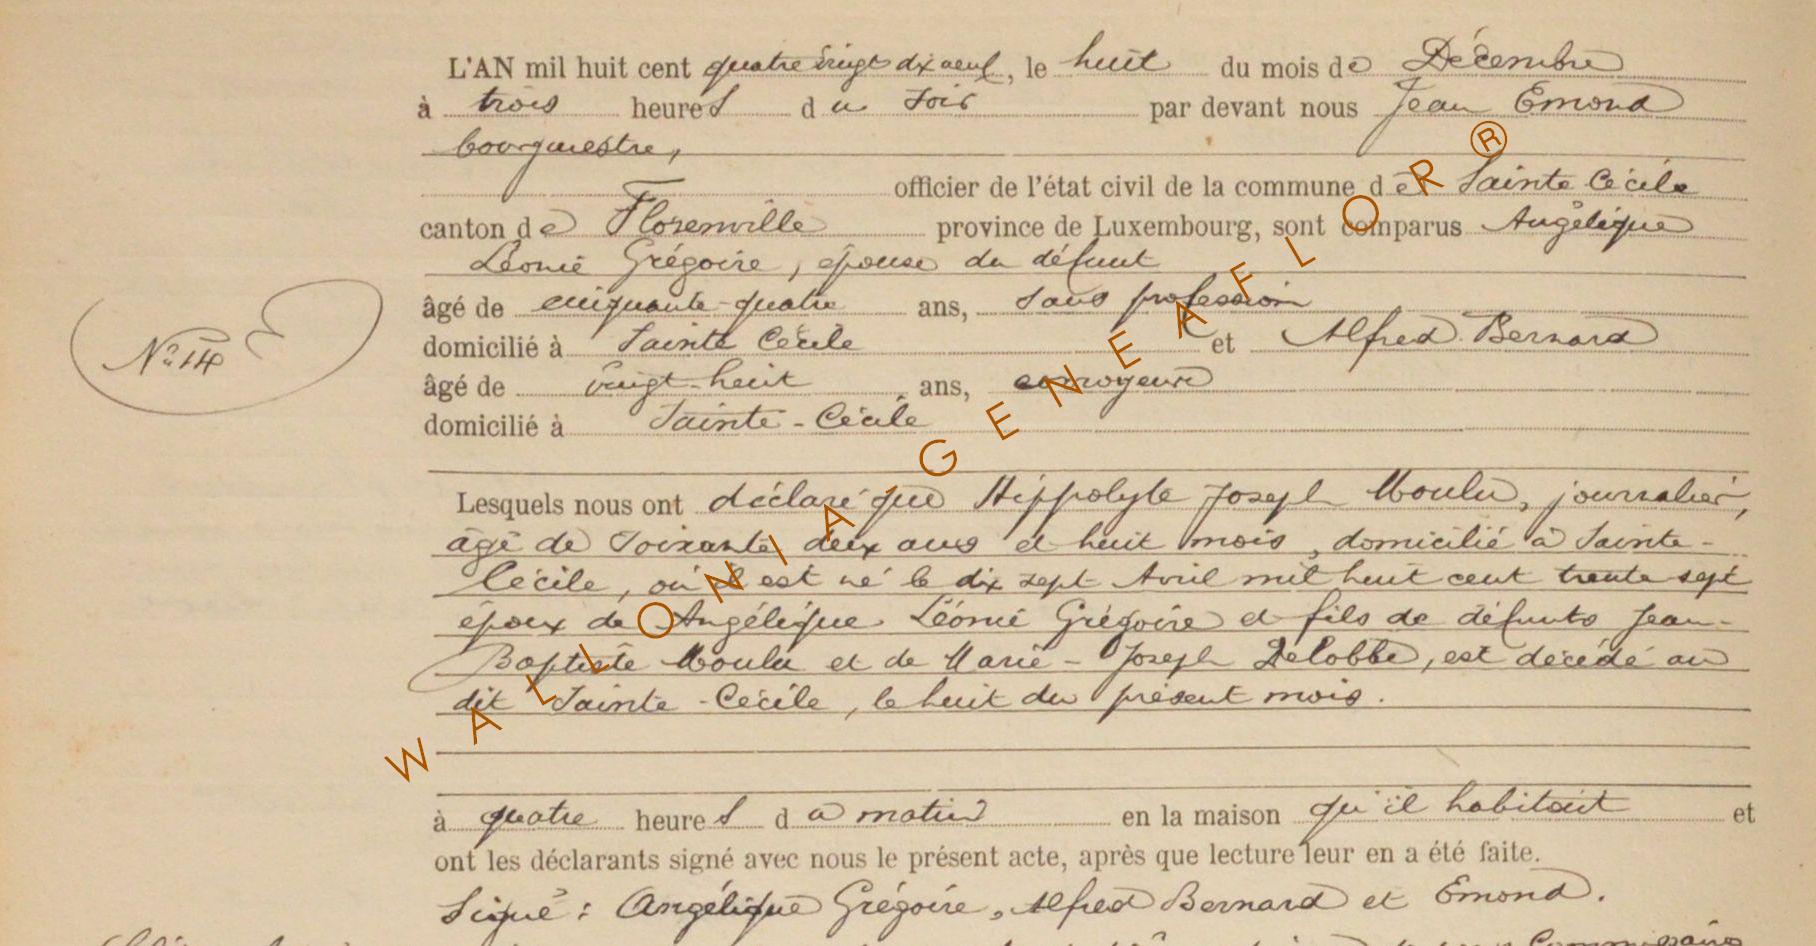 L'AN mil huit cent quatre vingt dix neuf, le huit du mois de Décembre
à trois heures du soir par devant nous Jean Emond
bourgmestre,
officier de l'état civil de la commune de Sainte Cécile
canton de Florenville province de Luxembourg, sont comparus Angélique
Léonie Grégoire, épouse du défunt
âgé de cinquante-quatre ans, sans profession
domicilié à Sainte Cécile et Alfred Bernard
N° 14
âgé de vingt-huit ans,
domicilié à Sainte-Cécile
Lesquels nous ont déclaré que Hippolyte Joseph Moulu, journalier,
âgé de soixante deux ans et huit mois, domicilié à Sainte-
Cécile, où il est né le dix sept Avril mil huit cent trente sept
époux de Angélique Léonie Grégoire et fils de défunts Jean-
Baptiste Moulu et de Marie-Joseph Delobbe, est décédé au
dit Sainte-Cécile, le huit du présent mois.
à quatre heures du matin en la maison qu'il habitait et
ont les déclarants signé avec nous le présent acte, après que lecture leur en a été faite.
Signé : Angélique Grégoire, Alfred Bernard et Emond.
WALLONIA-GENEAFLOR®